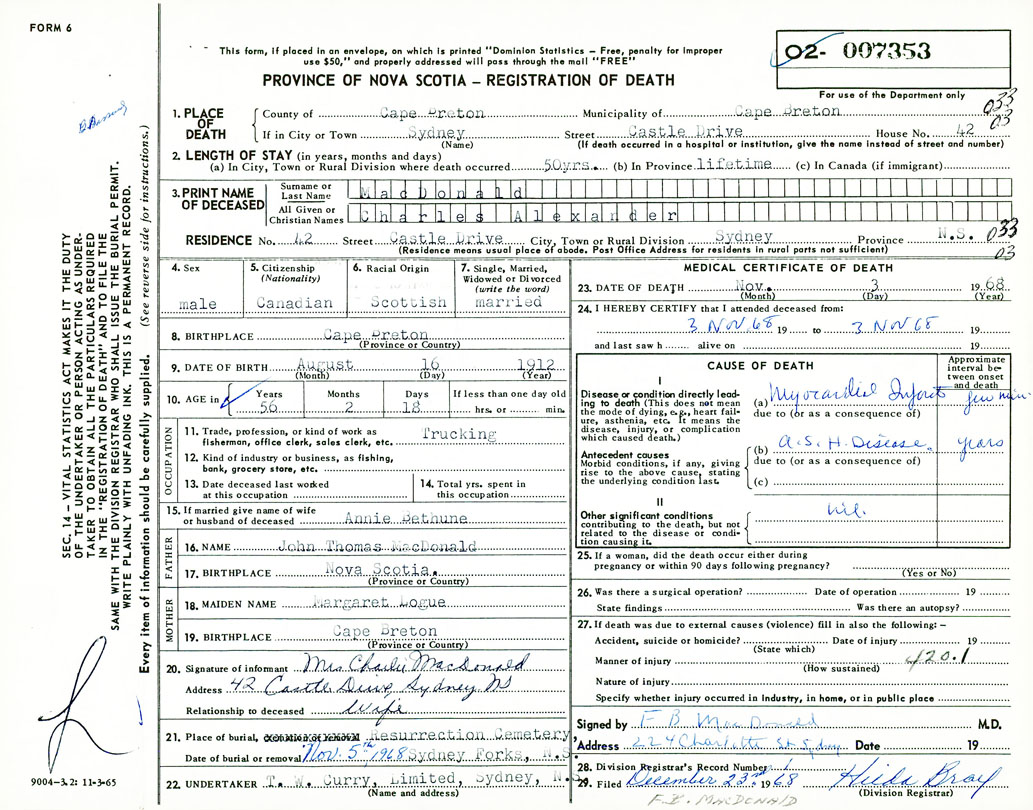 FORM 6
This form, if placed in an envelope, on which is printed "Dominion Statistics – Free, penalty for improper
use $50," and properly addressed will pass through the mail "FREE"
PROVINCE OF NOVA SCOTIA – REGISTRATION OF DEATH
02- 007353
For use of the Department only
033
03
1. PLACE OF DEATH County of Cape Breton Municipality of Cape Breton
If in City or Town Sydney Street Castle Drive House No. 42
(Name) (If death occurred in a hospital or institution, give the name instead of street and number)
2. LENGTH OF STAY (in years, months and days)
(a) In City, Town or Rural Division where death occurred 50yrs. (b) In Province lifetime (c) In Canada (if immigrant)
3. PRINT NAME OF DECEASED Surname or Last Name MacDonald
All Given or Christian Names Charles Alexander
RESIDENCE No. 42 Street Castle Drive City, Town or Rural Division Sydney Province N.S. 033
(Residence means usual place of abode. Post Office Address for residents in rural parts not sufficient) 03
4. Sex male
5. Citizenship (Nationality) Canadian
6. Racial Origin Scottish
7. Single, Married, Widowed or Divorced (write the word) married
8. BIRTHPLACE Cape Breton
(Province or Country)
9. DATE OF BIRTH August 16 1912
(Month) (Day) (Year)
10. AGE in Years Months Days If less than one day old
56 2 18 hrs. or min.
OCCUPATION
11. Trade, profession, or kind of work as Trucking
fisherman, office clerk, sales clerk, etc.
12. Kind of industry or business, as fishing,
bank, grocery store, etc.
13. Date deceased last worked
at this occupation
14. Total yrs. spent in
this occupation
15. If married give name of wife
or husband of deceased Annie Bethune
FATHER
16. NAME John Thomas MacDonald
17. BIRTHPLACE Nova Scotia.
(Province or Country)
MOTHER
18. MAIDEN NAME Margaret Logue
19. BIRTHPLACE Cape Breton
(Province or Country)
20. Signature of informant Mrs Charlie MacDonald
Address 42 Castle Drive Sydney NS
Relationship to deceased wife
21. Place of burial, cremation or removal Resurrection Cemetery,
Date of burial or removal Nov. 5th 1968 Sydney Forks, N.S.
22. UNDERTAKER T. W. Curry, Limited, Sydney, N.S.
(Name and address)
MEDICAL CERTIFICATE OF DEATH
23. DATE OF DEATH Nov. 3 1968
(Month) (Day) (Year)
24. I HEREBY CERTIFY that I attended deceased from:
3 NOV 68 19 to 3 NOV 68 19
and last saw h alive on 19
CAUSE OF DEATH
Approximate interval between onset and death
I
Disease or condition directly leading to death (This does not mean the mode of dying, e.g., heart failure, asthenia, etc. It means the disease, injury, or complication which caused death.)
(a) Myocardial Infarct few min
due to (or as a consequence of)
Antecedent causes
Morbid conditions, if any, giving rise to the above cause, stating the underlying condition last.
(b) A.S.H. Disease. years
due to (or as a consequence of)
(c)
II
Other significant conditions contributing to the death, but not related to the disease or condition causing it.
nil.
25. If a woman, did the death occur either during
pregnancy or within 90 days following pregnancy?
(Yes or No)
26. Was there a surgical operation? Date of operation 19
State findings Was there an autopsy?
27. If death was due to external causes (violence) fill in also the following: –
Accident, suicide or homicide? Date of injury 19
(State which)
Manner of injury 420.1
(How sustained)
Nature of injury
Specify whether injury occurred in industry, in home, or in public place
Signed by F B MacDonald M.D.
Address 224 Charlotte St Sydney Date 19
28. Division Registrar's Record Number
29. Filed December 23rd 1968 Hilda Bray
(Division Registrar)
F.B. MACDONALD
SEC. 14 – VITAL STATISTICS ACT MAKES IT THE DUTY
OF THE UNDERTAKER OR PERSON ACTING AS UNDER-
TAKER TO OBTAIN ALL THE PARTICULARS REQUIRED
IN THE "REGISTRATION OF DEATH" AND TO FILE THE
SAME WITH THE DIVISION REGISTRAR WHO SHALL ISSUE THE BURIAL PERMIT.
WRITE PLAINLY WITH UNFADING INK. THIS IS A PERMANENT RECORD.
Every item of information should be carefully supplied. (See reverse side for instructions.)
9004–3.2: 11-3-65